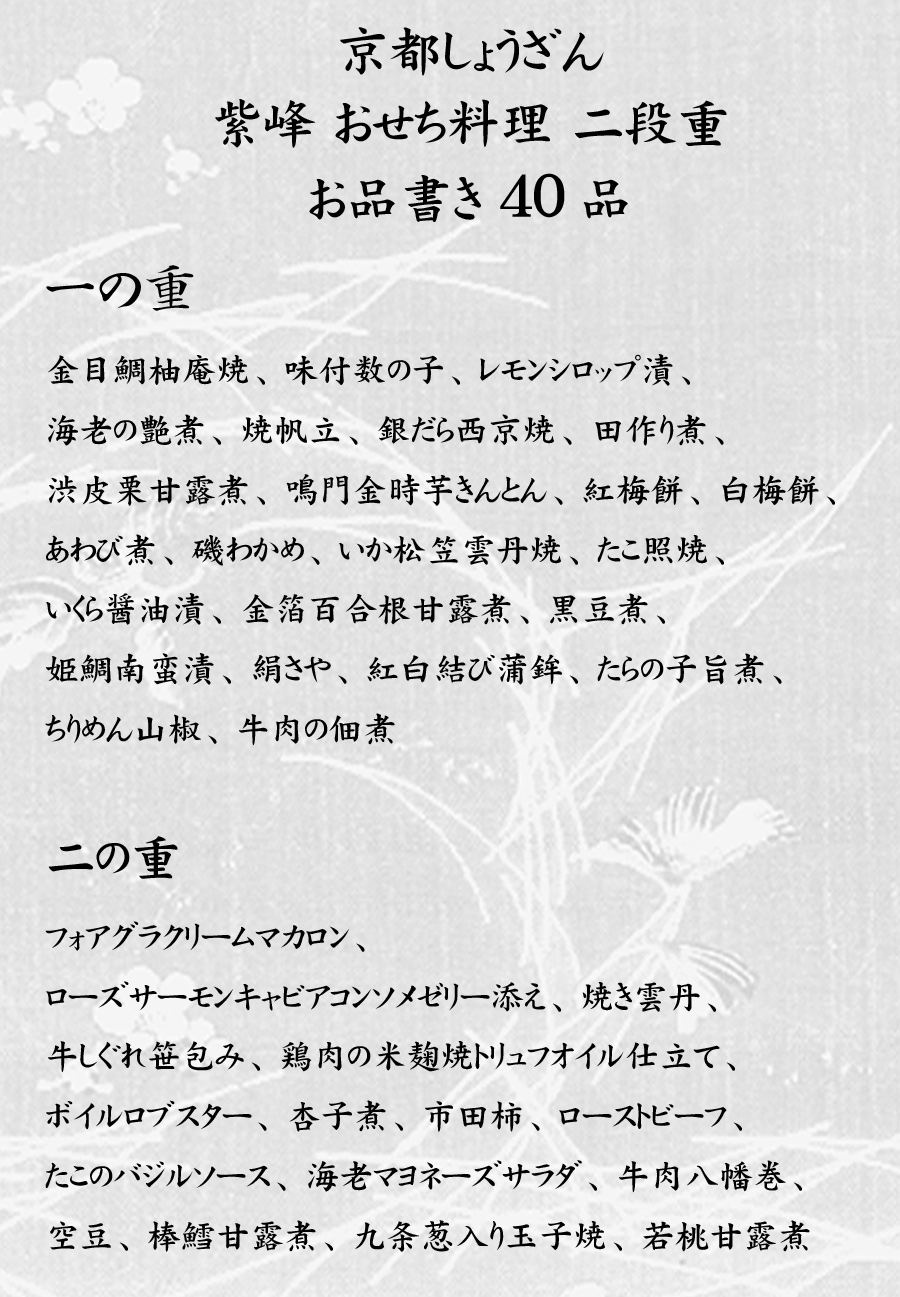 京都しょうざん
紫峰 おせち料理 二段重
お品書き 40 品
一の重
金目鯛柚庵焼、味付数の子、レモンシロップ漬、
海老の艶煮、焼帆立、銀だら西京焼、田作り煮、
渋皮栗甘露煮、鳴門金時芋きんとん、紅梅餅、白梅餅、
あわび煮、磯わかめ、いか松笠雲丹焼、たこ照焼、
いくら醤油漬、金箔百合根甘露煮、黒豆煮、
姫鯛南蛮漬、絹さや、紅白結び蒲鉾、たらの子旨煮、
ちりめん山椒、牛肉の佃煮
二の重
フォアグラクリームマカロン、
ローズサーモンキャビアコンソメゼリー添え、焼き雲丹、
牛しぐれ笹包み、鶏肉の米麹焼トリュフオイル仕立て、
ボイルロブスター、杏子煮、市田柿、ローストビーフ、
たこのバジルソース、海老マヨネーズサラダ、牛肉八幡巻、
空豆、棒鱈甘露煮、九条葱入り玉子焼、若桃甘露煮